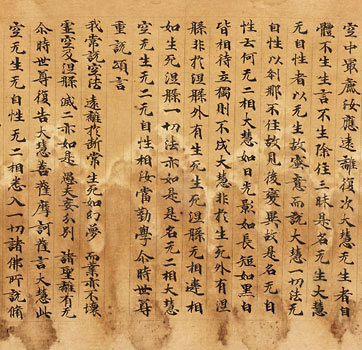 空中最麁汝應遠離復次大慧无生者自
體不生言不生除住三昧是名无生大慧
无自性者以无生故密意而說大慧一切法无
自性以剎那不住故見後變異故是名无自
性云何无二相大慧如日光影如長短如黑白
皆相待立獨則不成大慧非於生死外有涅
槃非於涅槃外有生死生死涅槃无相違相
如生死涅槃一切法亦如是是名无二相大慧
空无生无二无自性相汝當勤學尒時世尊
重說頌言
我常說空法 遠離於斷常 生死如幻夢 而業亦不壞
虛空及涅槃 滅二亦如是 愚夫妄分別 諸聖離有无
尒時世尊復告大慧菩薩摩訶薩言大慧此
空无生无自性无二相悉入一切諸佛所說脩